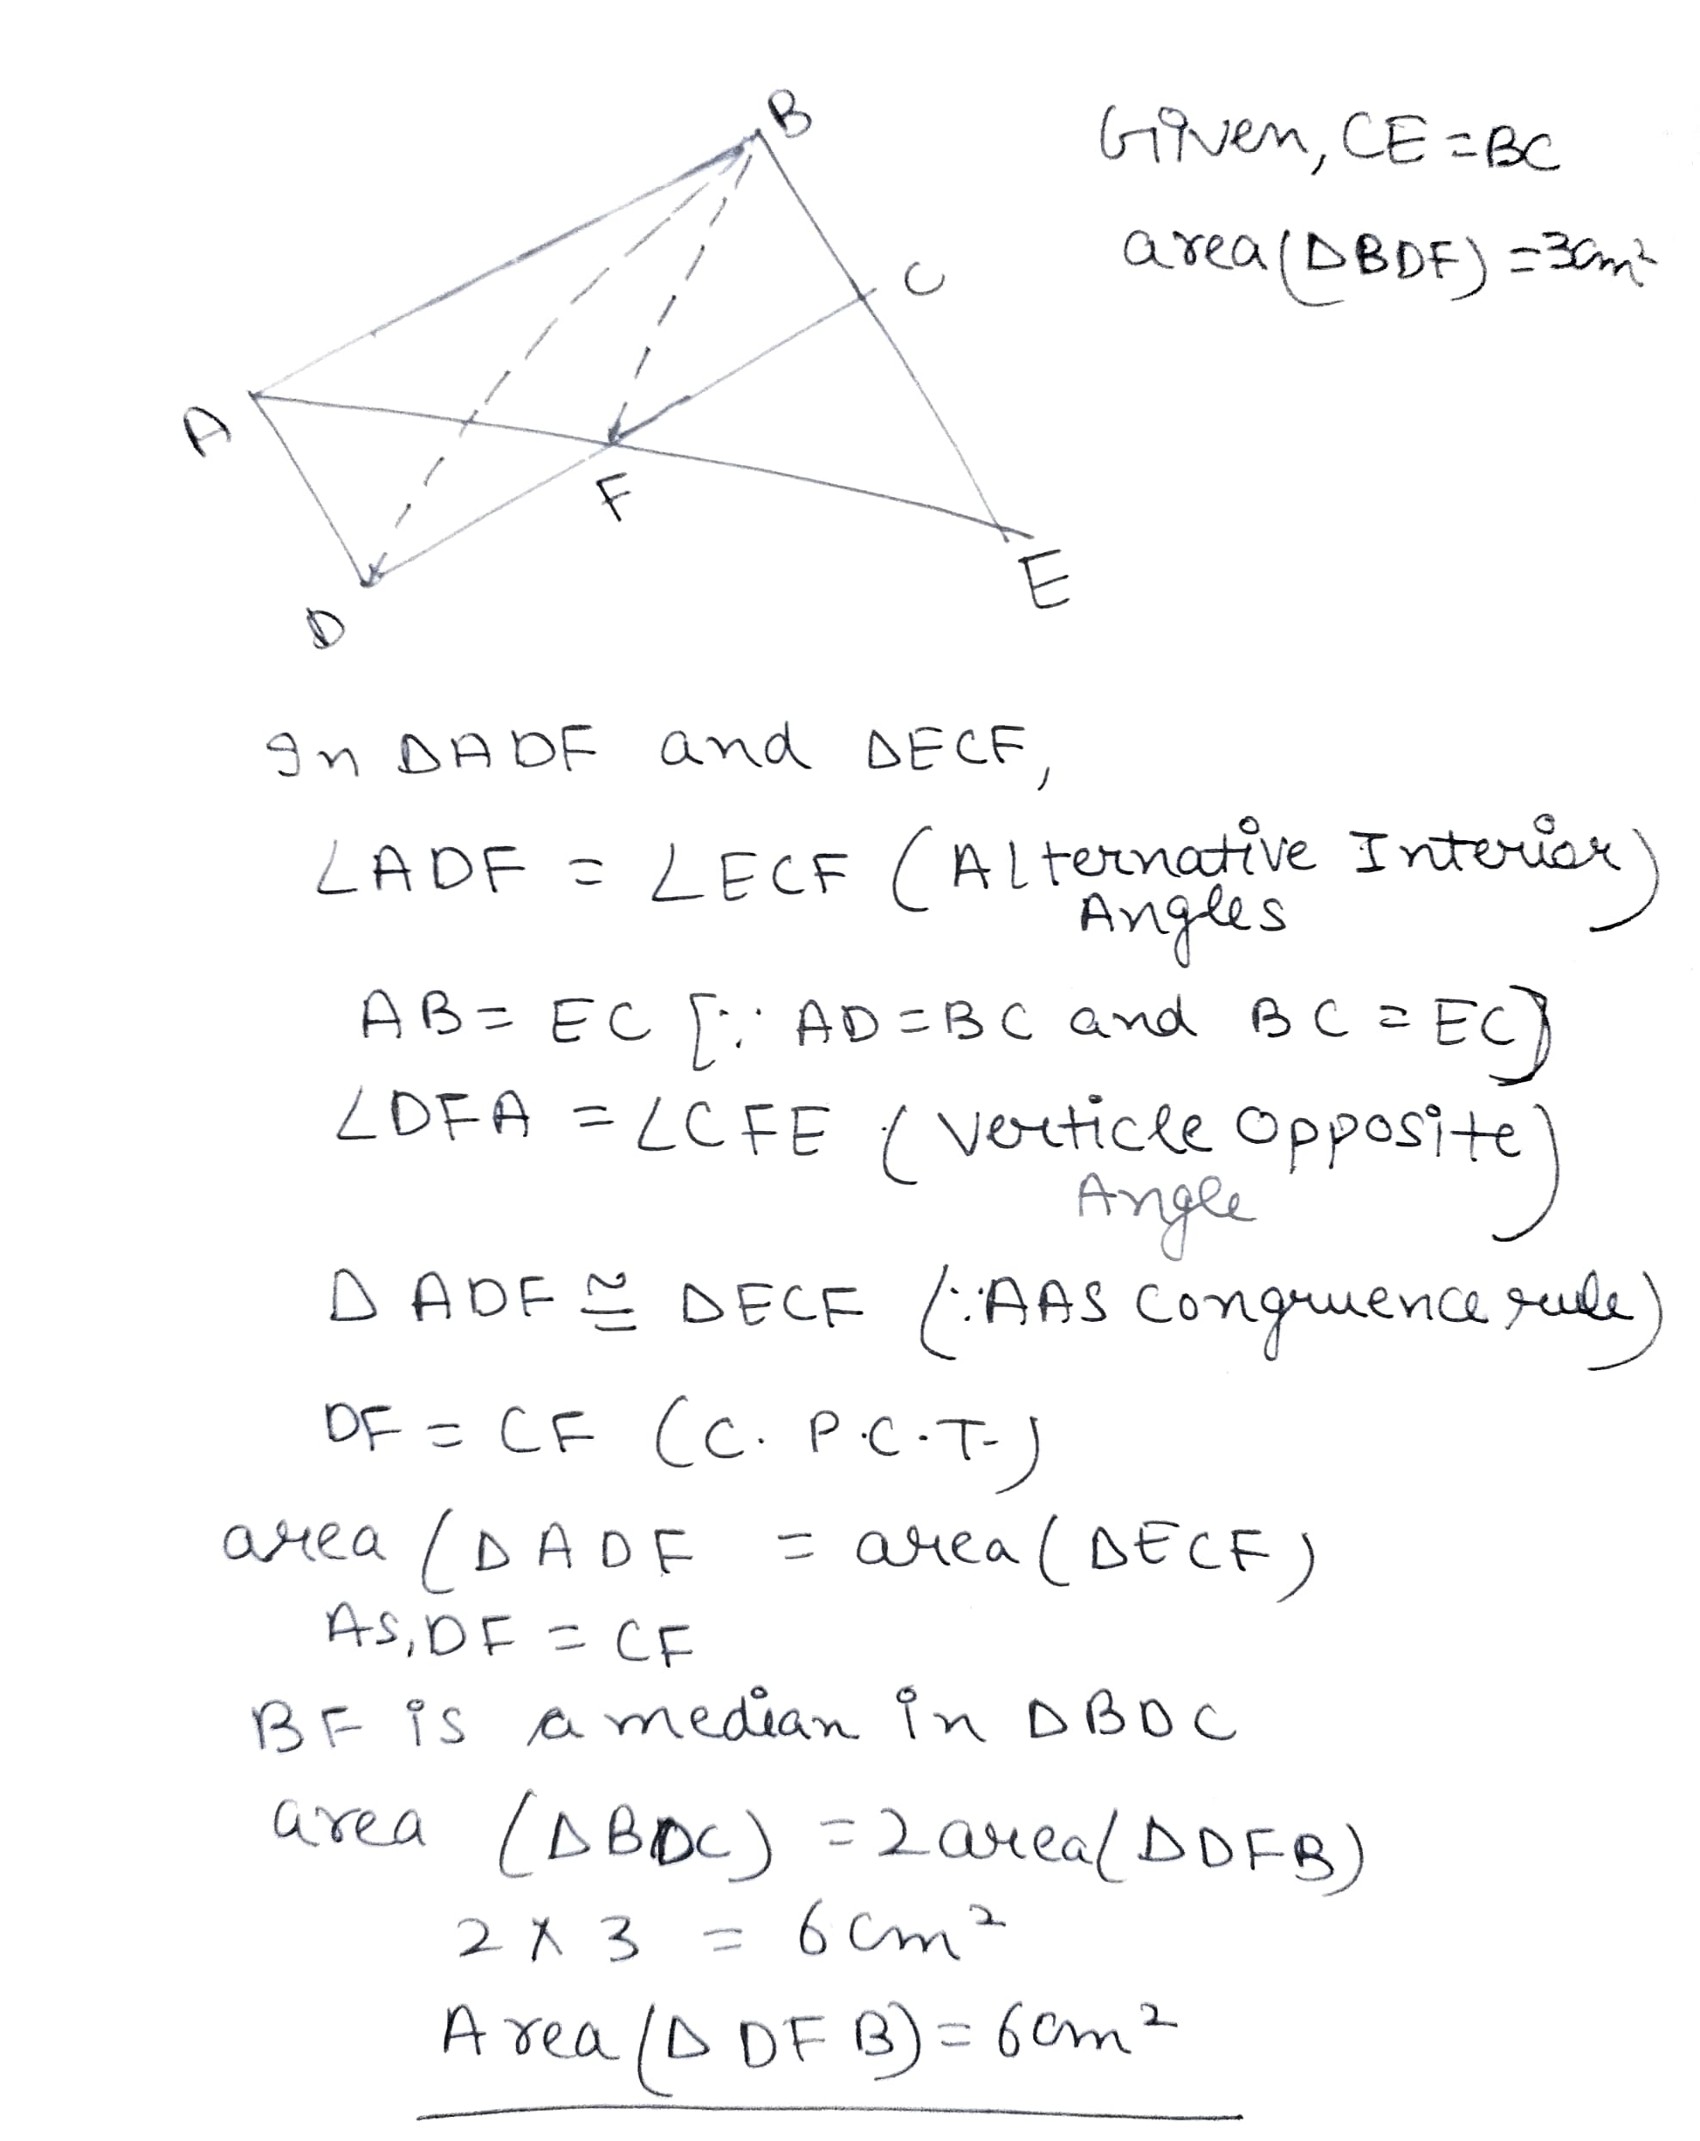 B
Given, CE = BC
C
area (ΔBDF) = 3cm²
A
F
E
D
In ΔADF and ΔECF,
∠ADF = ∠ECF (Alternative Interior
Angles)
AB = EC [∵ AD = BC and BC = EC]
∠DFA = ∠CFE (Verticle Opposite
Angle)
Δ ADF ≅ ΔECF (∵AAS Congruence rule)
DF = CF (C. P.C.T.)
area (ΔADF = area (ΔECF)
As, DF = CF
BF is a median in ΔBDC
area (ΔBDC) = 2 area (ΔDFB)
2 × 3 = 6cm²
Area (Δ DFB) = 6cm²